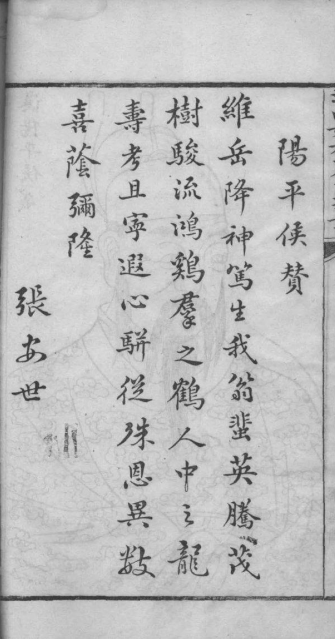 陽平侯贊
維岳降神篤生我翁蜚英騰茂
樹駿流鴻鷄羣之鶴人中之龍
壽考且寧遐心駢從殊恩異數
喜蔭彌隆
張安世